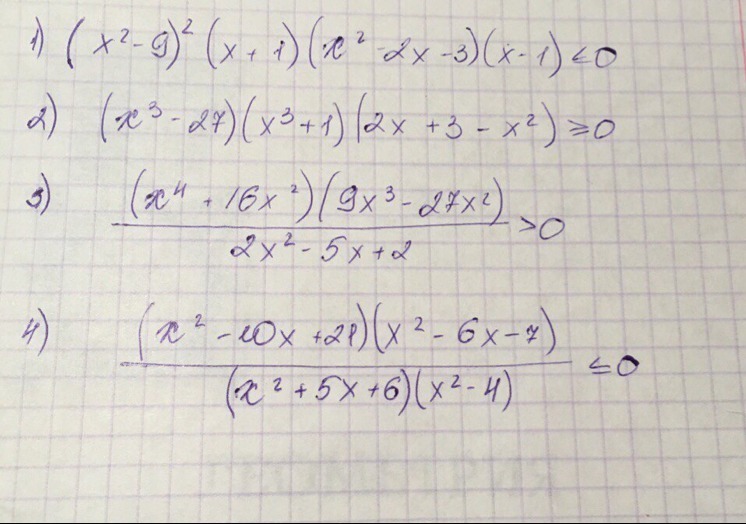 1) (x² - 9)² (x + 1) (x² - 2x - 3)(x - 1) ≤ 0
2) (x³ - 27)(x³ + 1) (2x + 3 - x²) ≥ 0
3) (x⁴ + 16x²)(9x³ - 27x²)
2x² - 5x + 2 > 0
4) (x² - 10x + 21)(x² - 6x - 7)
(x² + 5x + 6)(x² - 4) ≤ 0